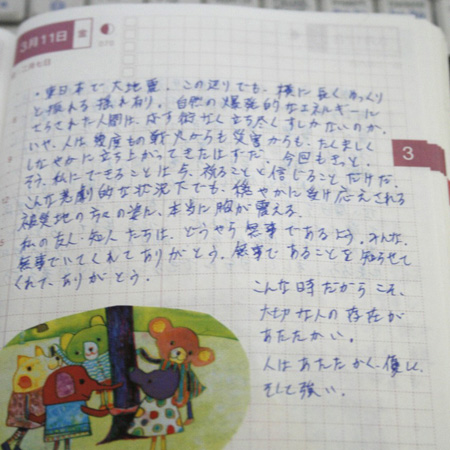 3月11日 金
二月七日
070
・東日本で大地震。この辺りでも、横に長くゆっくり
と揺れる揺れ有り。自然の爆発的なエネルギーに
てらされた人間は、なす術なく立ち尽くすしかないのか。
いや、人は幾度もの戦火からも災害からも、たくましく
しなやかに立ち上がってきたはずだ。今回もきっと。
そう、私にできることは今、祈ることと信じることだけだ。
こんな悲劇的な状況下でも、穏やかに受け応えされる
被災地の方々の姿に、本当に胸が震える。
私の友人・知人たちは、どうやら無事であるよう。みんな、
無事でいてくれてありがとう。無事であることを知らせて
くれて、ありがとう。
こんな時だからこそ、
大切な人の存在が
あたたかい。
人はあたたかく、優しく、
そして強い。
3